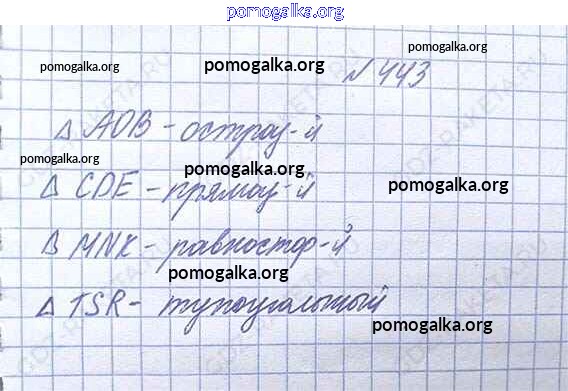 pomogalka.org
pomogalka.org
pomogalka.org
pomogalka.org
№ 443
Δ AOB - остроу-й
pomogalka.org
pomogalka.org
Δ CDE - прямоу-й
pomogalka.org
Δ MNK - равностор-й
pomogalka.org
Δ TSR - тупоугольный
pomogalka.org
GDZ-RAKETA.RU